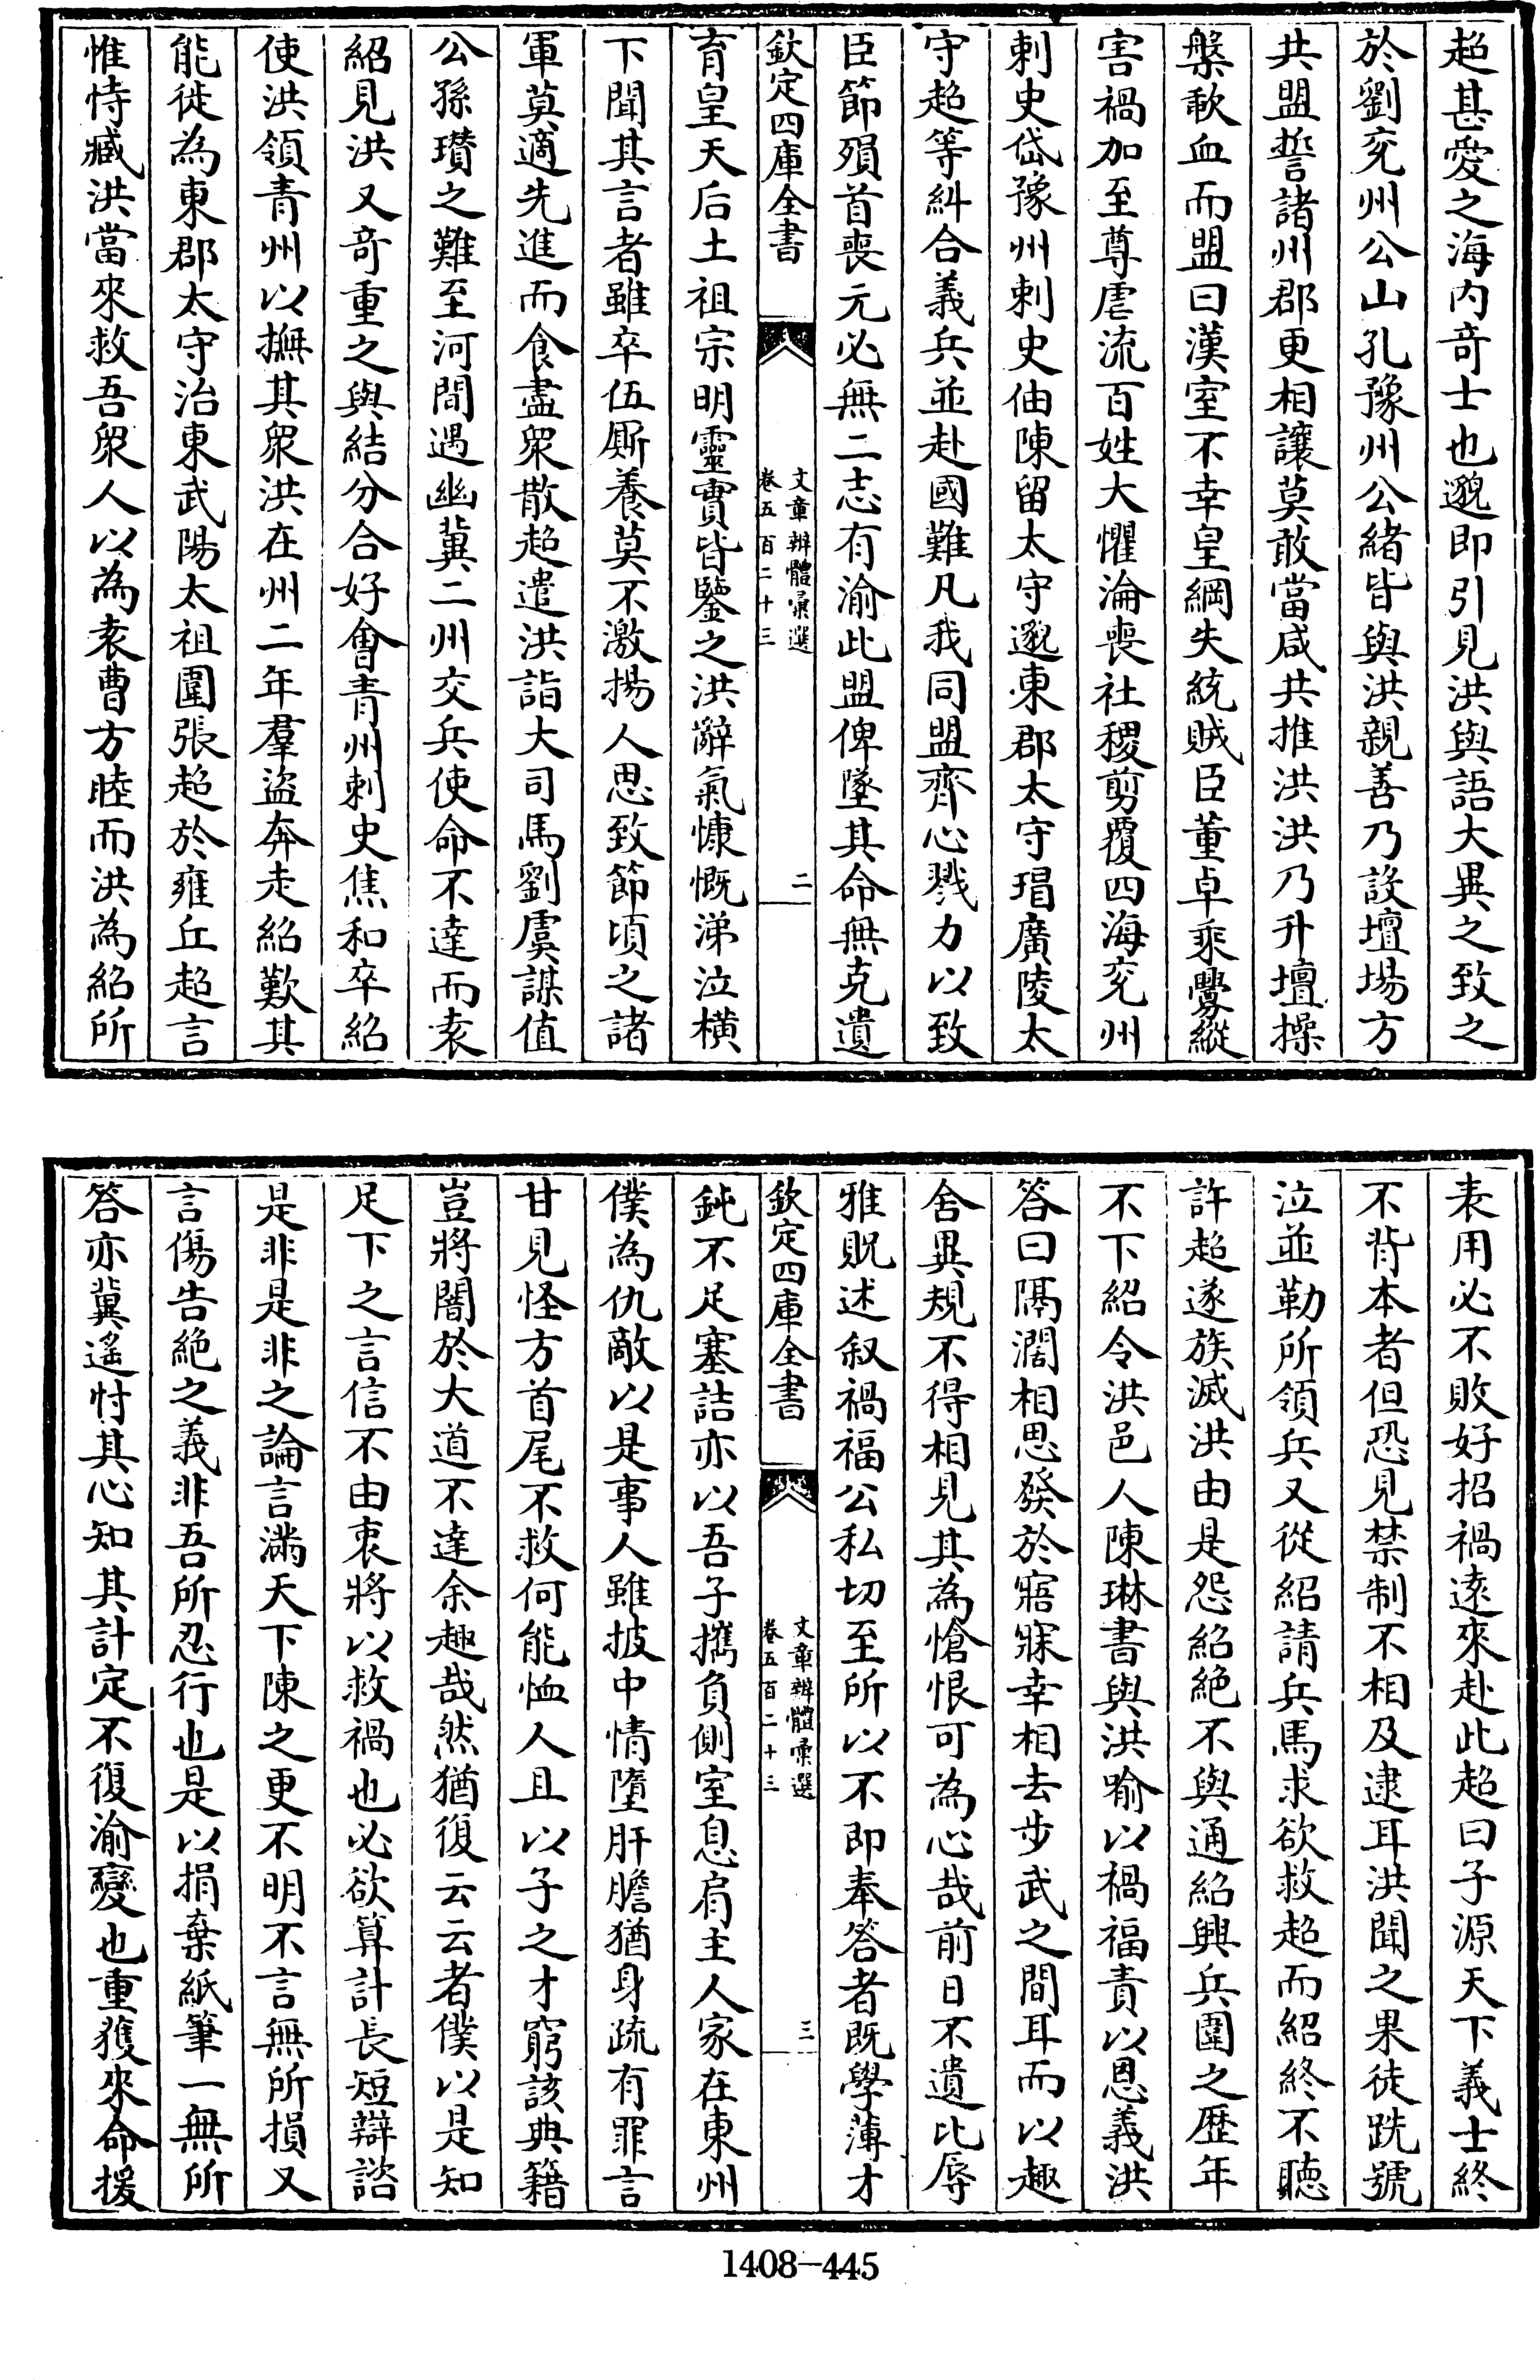 超甚愛之海内奇士也邈即引見洪與語大異之致之
於劉兖州公山孔豫州公緒皆與洪親善乃設壇場方
共盟誓諸州郡更相讓莫敢當咸共推洪洪乃升壇操
槃歃血而盟曰漢室不幸皇綱失統賊臣董卓乘釁縱
害禍加至尊虐流百姓大懼淪喪社稷剪覆四海兖州
刺史岱豫州刺史伷陳留太守邈東郡太守瑁廣陵太
守超等糾合義兵並赴國難凡我同盟齊心戮力以致
臣節殞首喪元必無二志有渝此盟俾墜其命無克遺
欽定四庫全書
文章辨體彚選
卷五百二十三
二
育皇天后土祖宗明靈實皆鑒之洪辭氣慷慨涕泣横
下聞其言者雖卒伍厮養莫不激揚人思致節頃之諸
軍莫適先進而食盡衆散超遣洪詣大司馬劉虞謀值
公孫瓚之難至河間遇幽冀二州交兵使命不達而袁
紹見洪又奇重之與結分合好㑹青州刺史焦和卒紹
使洪領青州以撫其衆洪在州二年羣盜奔走紹歎其
能徙為東郡太守治東武陽太祖圍張超於雍丘超言
惟恃臧洪當來救吾衆人以為袁曹方睦而洪為紹所
表用必不敗好招禍逺來赴此超曰子源天下義士終
不背本者但恐見禁制不相及逮耳洪聞之果徒跣號
泣並勒所領兵又從紹請兵馬求欲救超而紹終不聽
許超遂族滅洪由是怨紹絶不與通紹興兵圍之歴年
不下紹令洪邑人陳琳書與洪喻以禍福責以恩義洪
答曰隔濶相思發於寤寐幸相去步武之間耳而以趣
舍異規不得相見其為愴恨可為心哉前日不遺比辱
雅貺述叙禍福公私切至所以不即奉答者既學薄才
欽定四庫全書
文章辨體彚選
卷五百二十三
三
鈍不足塞詰亦以吾子攜負側室息肩主人家在東州
僕為仇敵以是事人雖披中情墮肝膽猶身疏有罪言
甘見怪方首尾不救何能恤人且以子之才窮該典籍
豈將闇於大道不達余趣哉然猶復云云者僕以是知
足下之言信不由衷將以救禍也必欲算計長短辯諮
是非是非之論言滿天下陳之更不明不言無所損又
言傷告絶之義非吾所忍行也是以捐棄紙筆一無所
答亦冀遙忖其心知其計定不復渝變也重獲來命援
1408-445